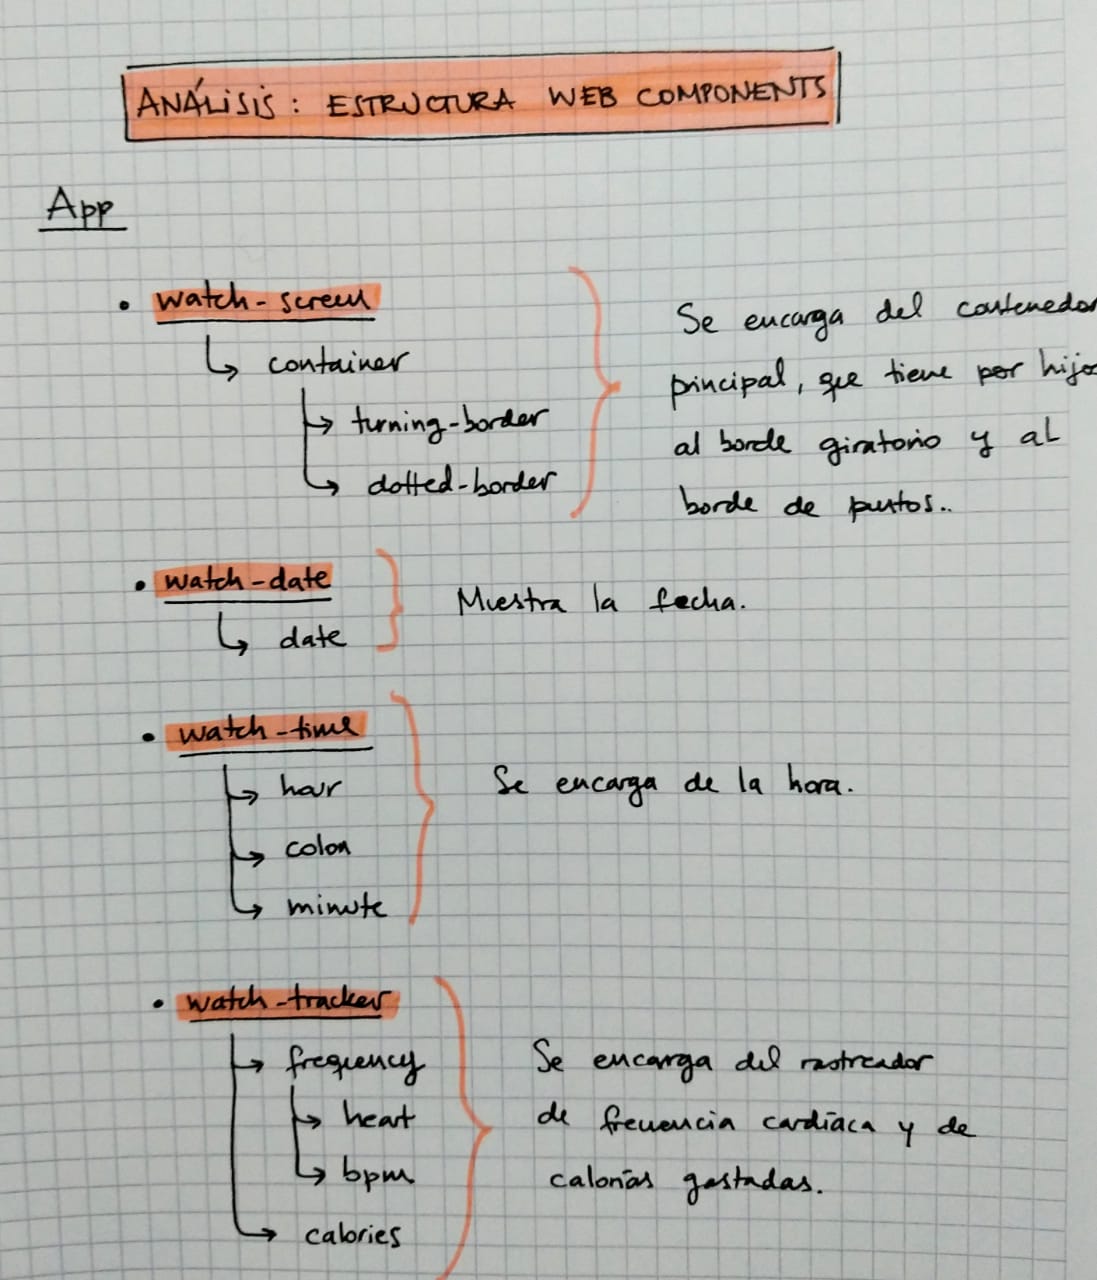 ANÁLISIS: ESTRUCTURA WEB COMPONENTS
App
• watch-screen
↳ container
→ turning-border
↳ dotted-border
Se encarga del contenedor
principal, que tiene por hijo
al borde giratorio y al
borde de puntos..
• watch-date
↳ date
Muestra la fecha.
• watch-time
→ hour
→ colon
↳ minute
Se encarga de la hora.
• watch-tracker
→ frequency
→ heart
↳ bpm
↳ calories
Se encarga del rastreador
de frecuencia cardíaca y de
calorías gastadas.